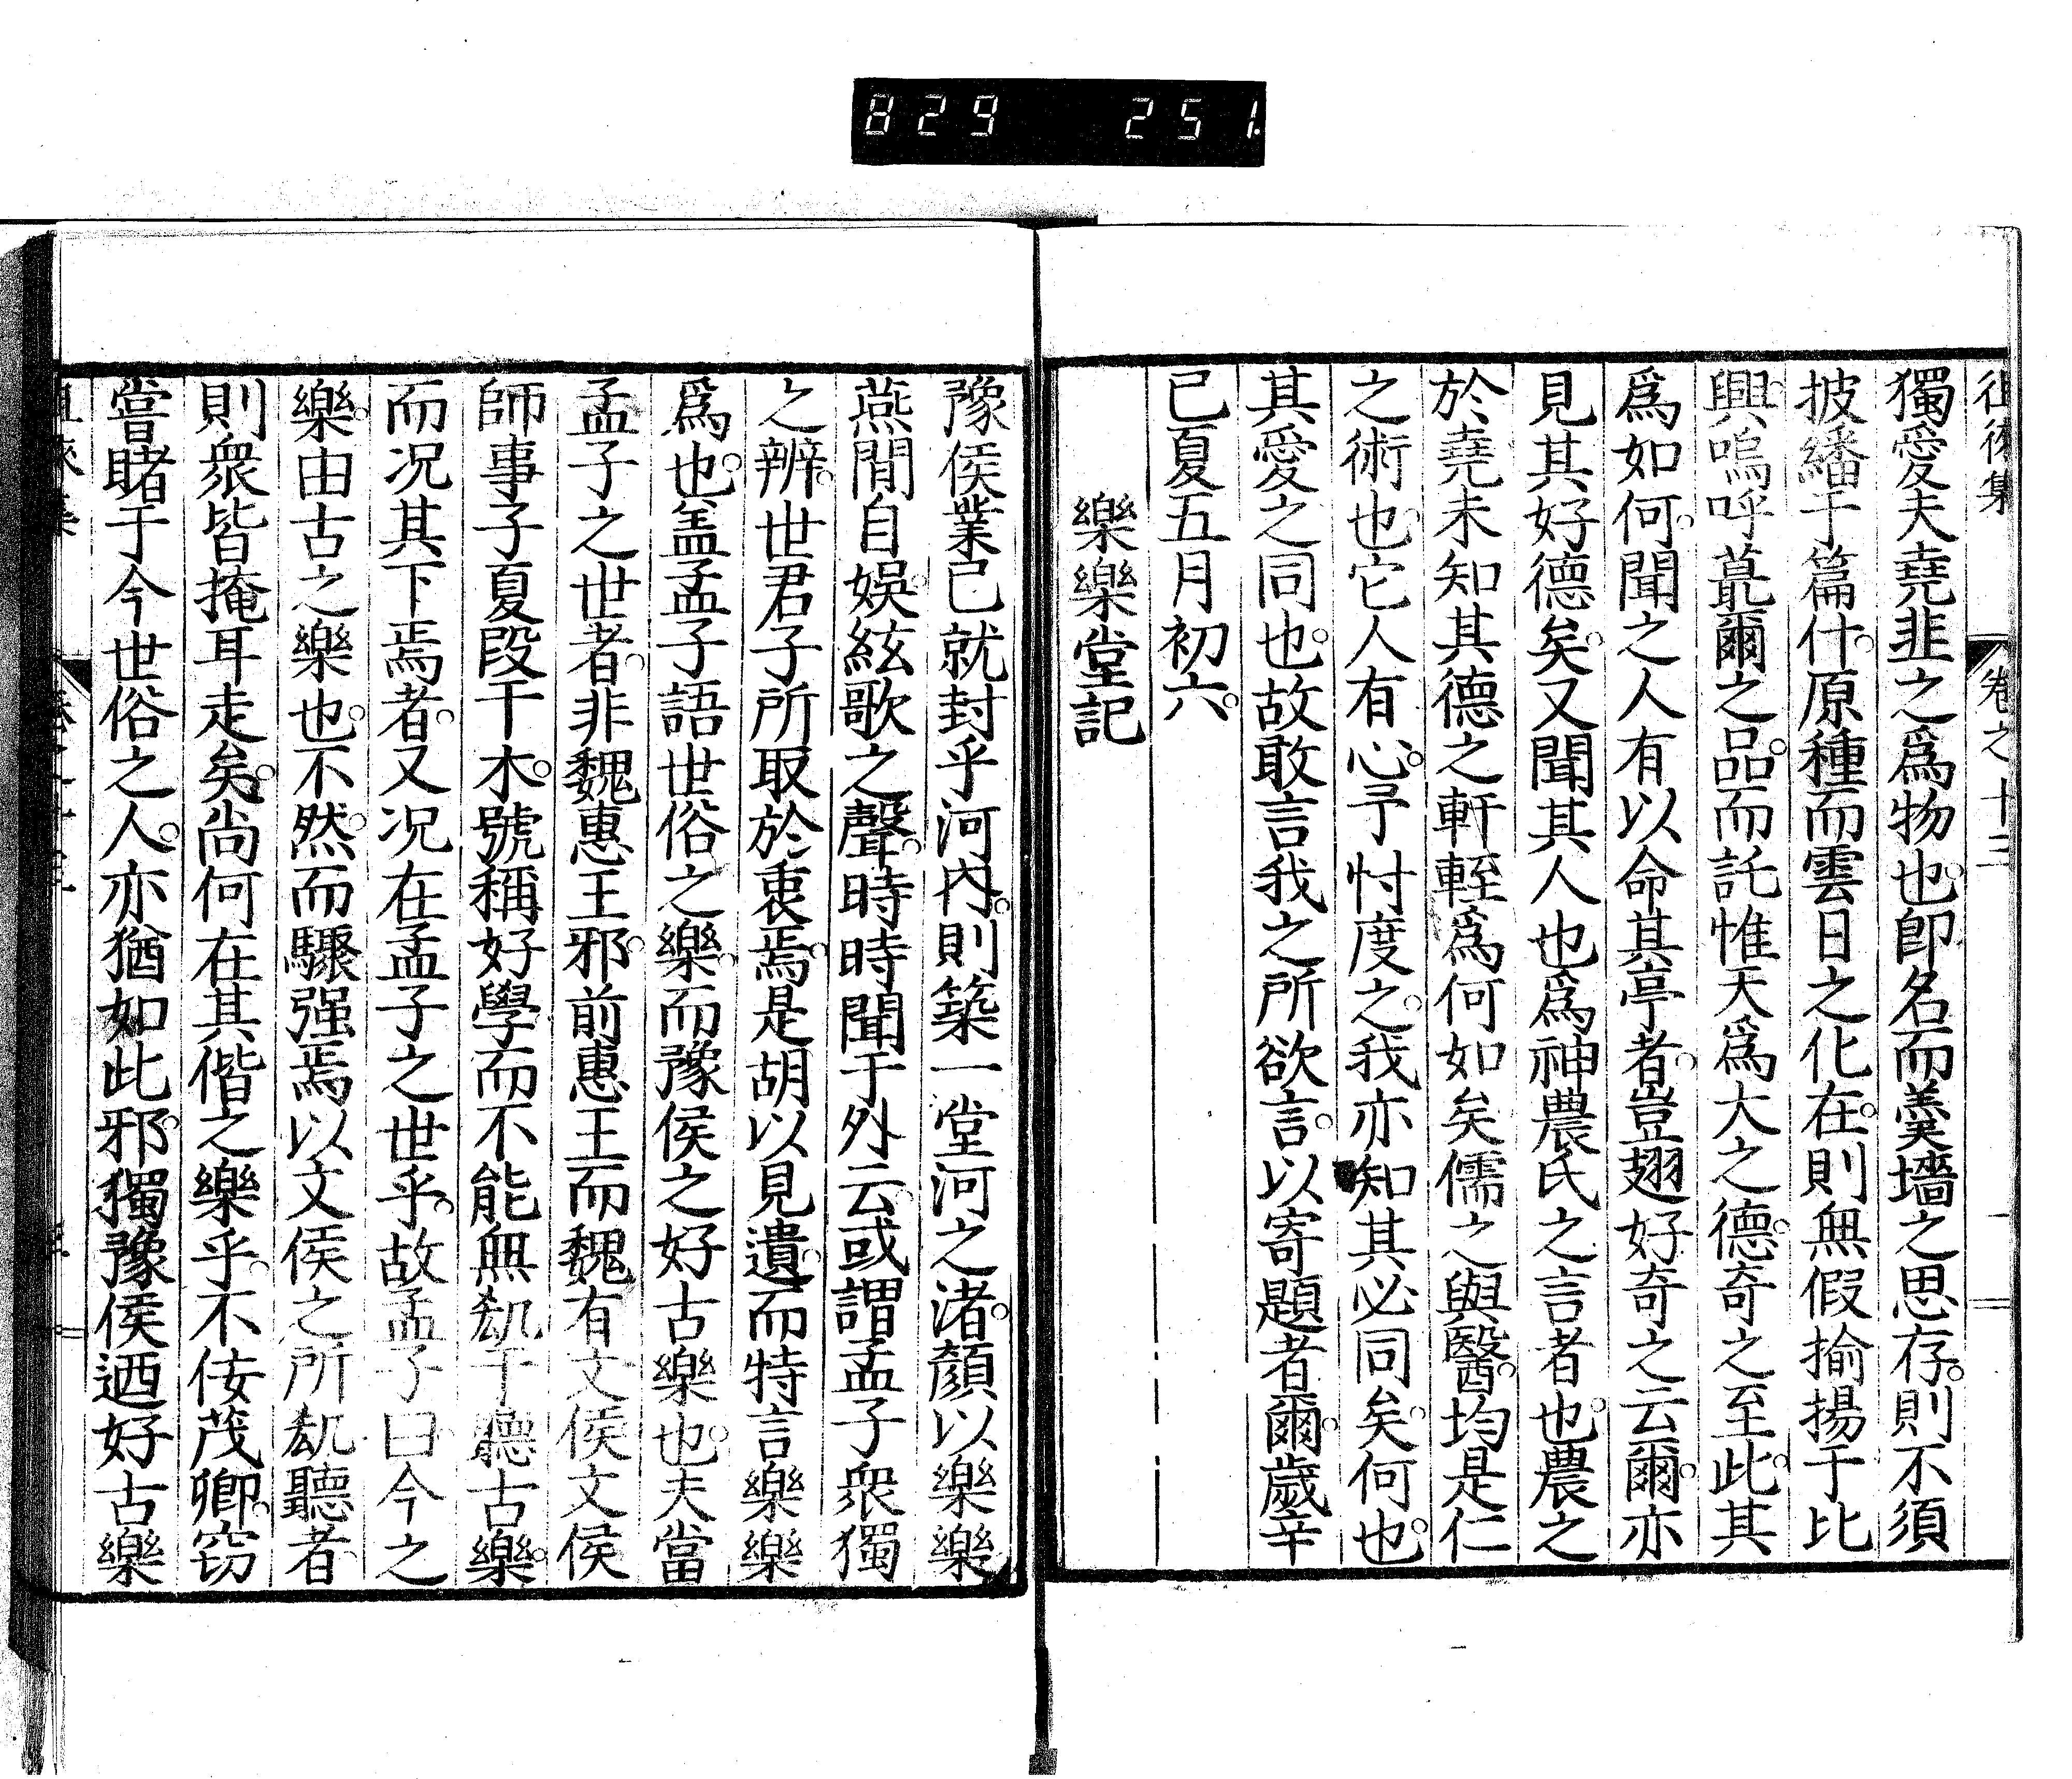 829 251.
徂徠集 卷之十三
獨愛夫堯韭之爲物也。卽名而羹墻之思存。則不須
披繙于篇什。原種而雲日之化在。則無假揄揚于比
興。嗚呼蕞爾之品。而託惟天爲大之德。奇之至此。其
爲如何。聞之人有以命其亭者。豈翅好奇之云爾。亦
見其好德矣。又聞其人也爲神農氏之言者也。農之
於堯未知其德之軒輊爲何如矣儒之與醫。均是仁
之術也。它人有心。予忖度之。我亦知其必同矣。何也。
其愛之同也。故敢言我之所欲言。以寄題者爾。歲辛
已夏五月初六。
樂樂堂記
豫侯業已就封乎河內。則築一堂河之渚。顏以樂樂
燕閒自娛。絃歌之聲。時時聞于外云。或謂孟子衆獨
之辨。世君子所取於衷焉。是胡以見遺。而特言樂樂
爲也。盖孟子語世俗之樂。而豫侯之好古樂也。夫當
孟子之世者。非魏惠王邪。前惠王而魏有文侯文侯
師事子夏段干木。號稱好學而不能無㔸于聽古樂。
而况其下焉者。又况在孟子之世乎。故孟子曰。今之
樂。由古之樂也。不然。而驟强焉以文侯之所㔸聽者
則衆皆掩耳走矣。尚何在其偕之樂乎。不佞茂卿。窃
嘗睹于今世俗之人。亦猶如此邪。獨豫侯迺好古樂